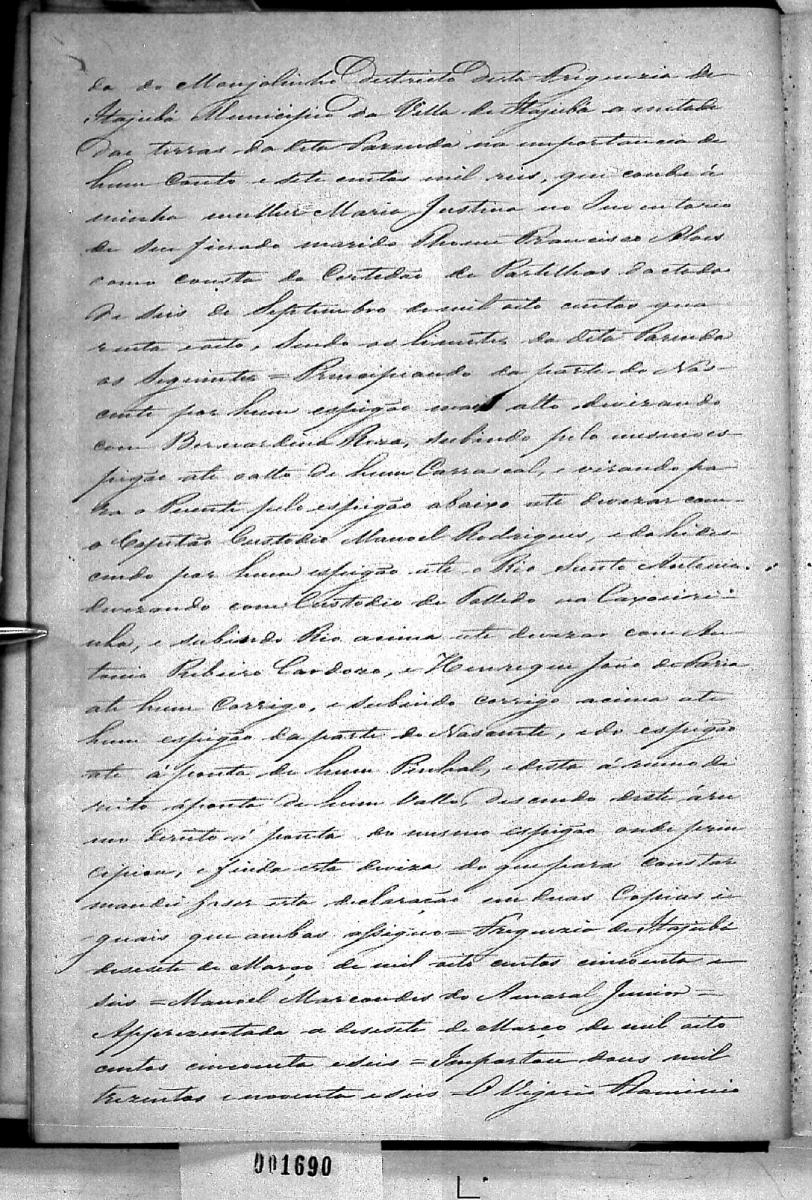 da do Monjolinho Destricto desta Freguezia de
Itajubá Municipio da Villa de Itajubá a metade
das terras da dita Fazenda na importancia de
hum conto e sete centos mil reis, que coube á
minha mulher Maria Justina no Inventario
de seu finado marido Thome Francisco Alves
como consta da Certidão de Partilhas dactada
de seis de Septembro de mil oito centos qua
renta e oito, sendo os limites da dita Fazenda
os seguintes = Principiando da parte do Nas-
cente por hum espigão mais alto divizando
com Bernardino Roza, subindo pelo mesmo es-
pigão até o alto de hum Carrascal, e virando pa
ra o Poente pelo espigão abaixo até divizar com
o Capitão Custodio Manoel Rodrigues, e dahi des-
cendo por hum espigão até o Rio Santo Antonio
divizando com Custodio de Tolledo na Caxoeiri-
nha, e subindo Rio acima até divizar com An-
tonio Ribeiro Cardozo, e Henrique João de Faria
até hum Corrigo, e subindo corrigo acima até
hum espigão da parte do Nascente, e do espigão
até á ponta de hum Pinhal, e desta á rumo di
reito á ponta de hum Vallo, descendo deste á ru
mo direito á ponta do mesmo espigão onde prin
cipiou, e finda esta diviza do que para constar
mandei faser esta declaração em duas Copias i-
guais que ambas assigno = Freguezia de Itajubá
desesete de Março de mil oito centos cincoenta e
seis = Manoel Marcondes do Amaral Junior =
Apprezentada a desesete de Março de mil oito
centos cincoenta e seis = Importou dous mil
trezentos e noventa e seis = O Vigario
001690